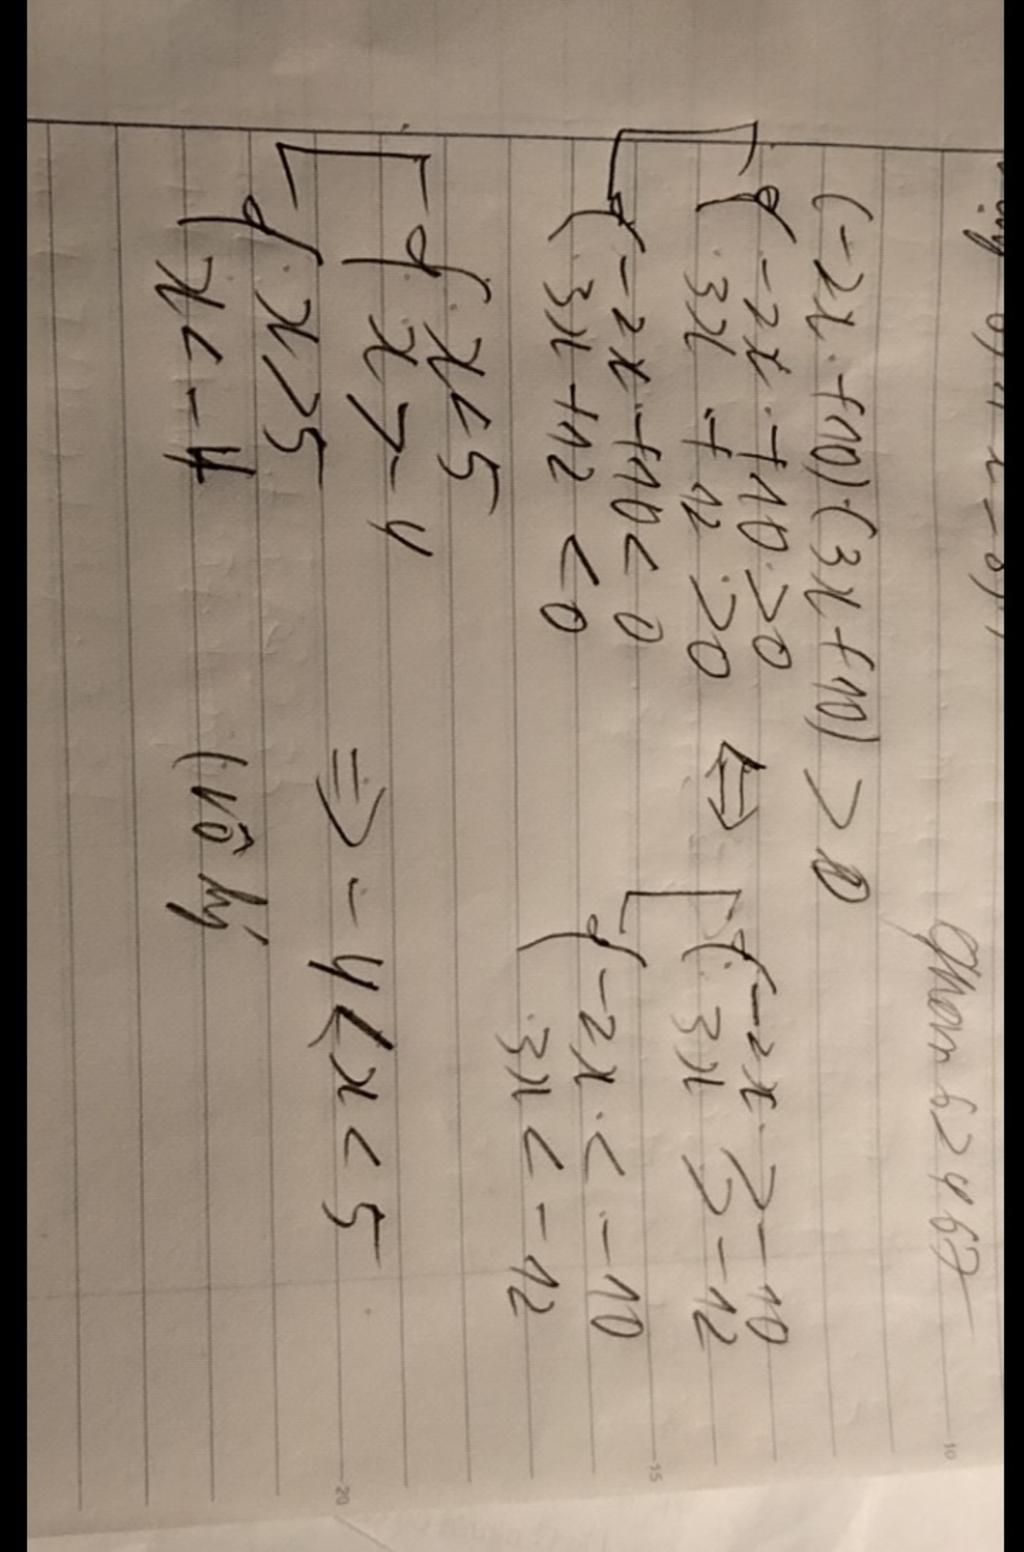 Pham 62467
(-2x + 10) . (3x + 10) > 0
-2x + 10 > 0
3x + 12 > 0
-2x + 10 < 0
3x + 12 < 0
⇔
-2x > -10
3x > -12
-2x < -10
3x < -12
x < 5
x > -4
⇒ -4 < x < 5
x > 5
x < -4
(vô lý
10
15
20